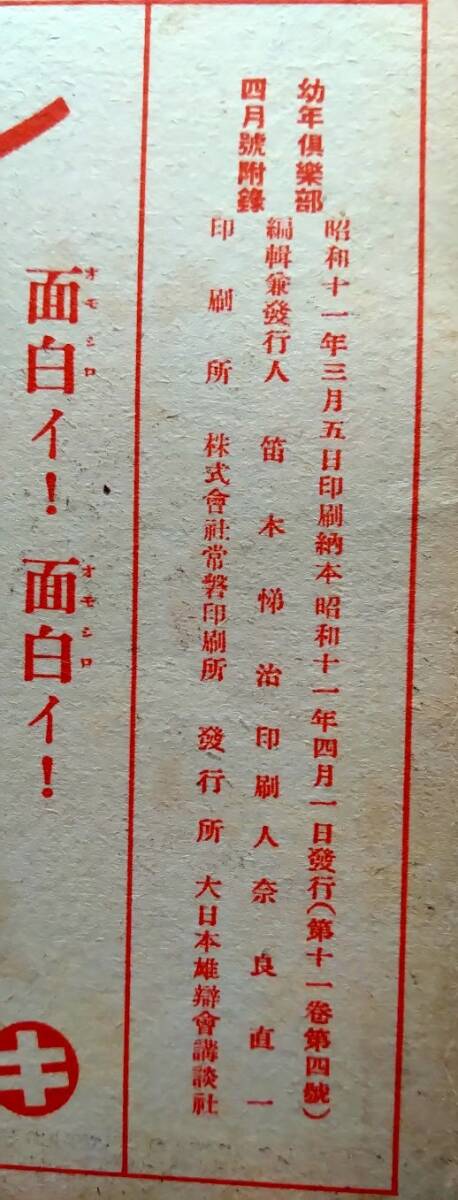 幼年倶樂部
四月號附錄
昭和十一年三月五日印刷納本 昭和十一年四月一日發行(第十一卷第四號)
編輯兼發行人 笛木悌治 印刷人 奈良直一
印刷所 株式會社常磐印刷所 發行所 大日本雄辯會講談社
面白イ！面白イ！
オモシロ オモシロ
キ